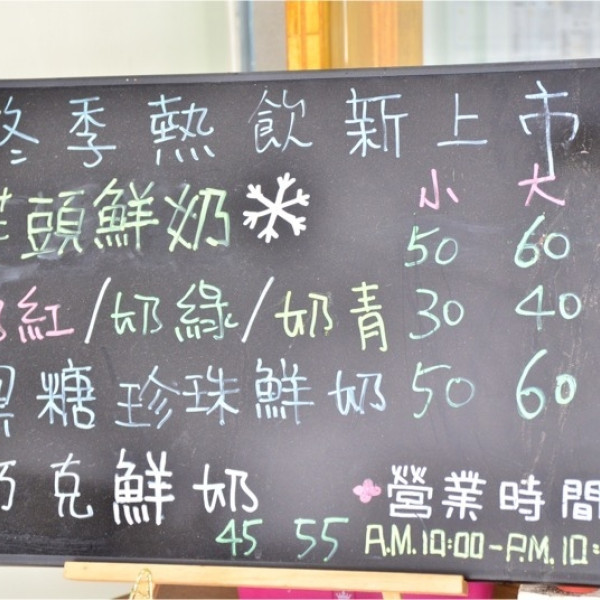 冬季熱飲新上市
小 大
芋頭鮮奶 50 60
奶紅/奶綠/奶青 30 40
黑糖珍珠鮮奶 50 60
巧克鮮奶 45 55
營業時間
A.M.10:00-P.M.10: